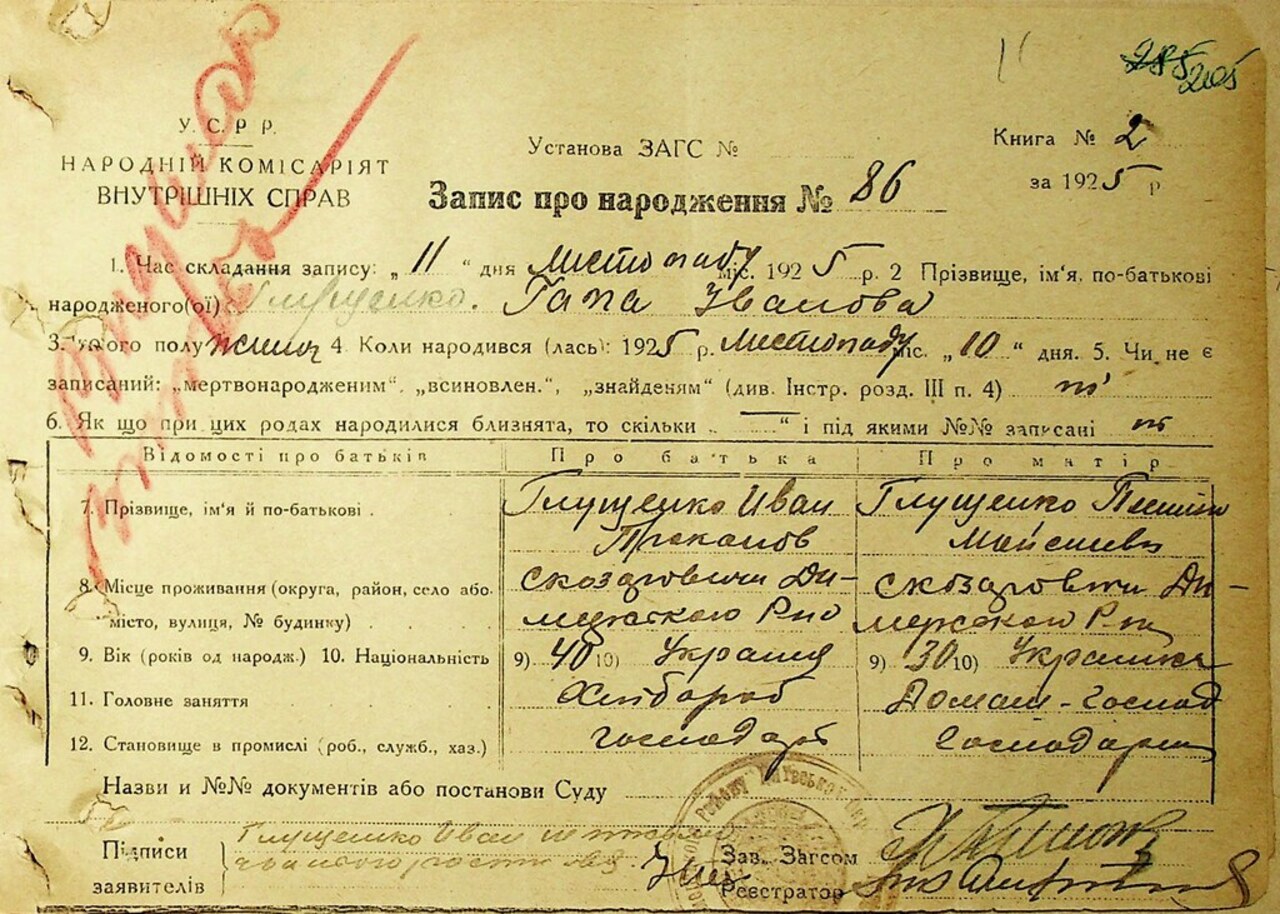 205
У. С. Р. Р.
НАРОДНІЙ КОМІСАРІЯТ
ВНУТРІШНІХ СПРАВ
Установа ЗАГС №
Книга № 2
за 1925 р.
Запис про народження № 86
1. Час складання запису: „11“ дня Листопаду міс. 1925 р. 2 Прізвище, ім'я, по-батькові
народженого(ої) Глущенко. Гапа Іванова
3. Якого полу жіноч 4. Коли народився (лась): 1925 р. Листопаду міс. „10“ дня. 5. Чи не є
записаний: „мертвонародженим“, „всиновлен.“, „знайденям“ (див. Інстр. розд. III п. 4)
6. Як що при цих родах народилися близнята, то скільки „—“ і під якими №№ записані
Відомості про батьків Про батька Про матір
7. Прізвище, ім'я й по-батькові Глущенко Иван Глущенко
8. Місце проживання (округа, район, село або
місто, вулиця, № будинку)
9. Вік (років од народж.) 10. Національність 9) 40 10) Украинц 9) 30 10) Украинка
11. Головне заняття Хлібороб Домаш-господ
12. Становище в промислі (роб., служб., хаз.) господарь Господарка
Назви и №№ документів або постанови Суду
Підписи
заявителів
Глущенко Иван
Зав. Загсом
Реєстратор